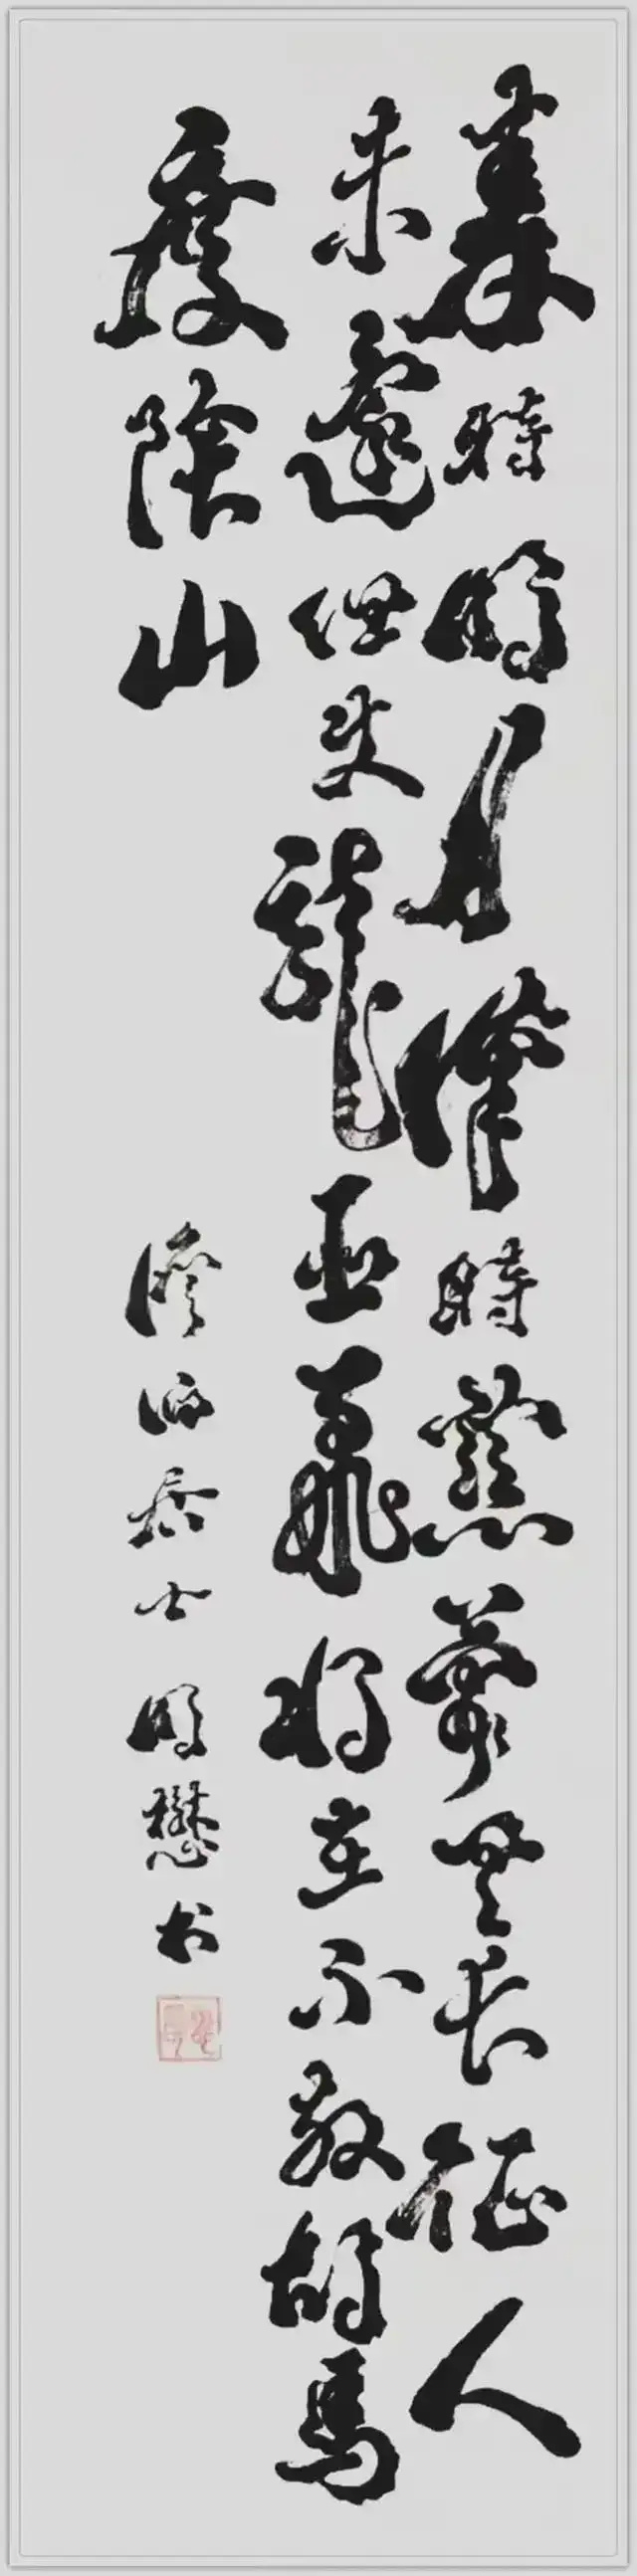 秦時明月漢時關萬里長征人
未還但使龍飛將在不教胡馬
度陰山
居士明懋书